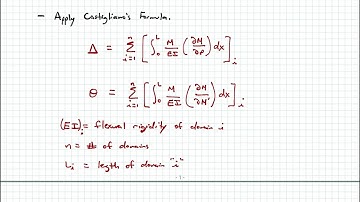 - Apply Castigliano's Formula.
Δ = Σ_{i=1}^{n} [ ∫_0^L M/EI (∂M/∂P) dx ]_i
Θ = Σ_{i=1}^{n} [ ∫_0^L M/EI (∂M/∂M') dx ]_i
(EI)_i = flexural rigidity of domain i
n = # of domains
L_i = length of domain "i"